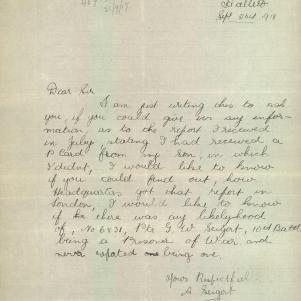 Hallett
Sept 22nd 1918
Dear Sir
I am just writing this to ask
you, if you could give us any infor-
mation as to the report I received
in July, stating I had received a
P Card from my son, in which
I didnt, I would like to know
if you could find out, how
Headquarters got that report in
London, I would like to know
if there was any likelyhood
of, No 6831, Pte G. W. Seigert, 10th Batt
being a Prisoner of War and
never reported being one.
Yours Respectful
A Seigert